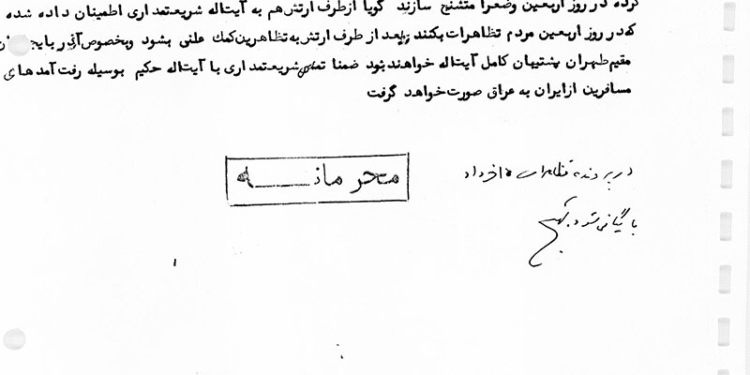 کرده در روز اربعین وضعرا متشنج سازند گویا ازطرف ارتش هم به آیت‌اله شریعتمداری اطمینان داده شده
که در روز اربعین مردم تظاهرات بکنند بعد از طرف ارتش به تظاهرین کمک علنی بشود وبخصوص
مقیم طهران پشتیبان کامل آیت‌اله خواهند بود ضمنا تماس شریعتمداری با آیت‌اله حکیم بوسیله رفت آمدهای
مسافرین ازایران به عراق صورت خواهد گرفت
محرمانــــه
در پرونده تظاهرات ۱۵ خرداد
بایگانی شود